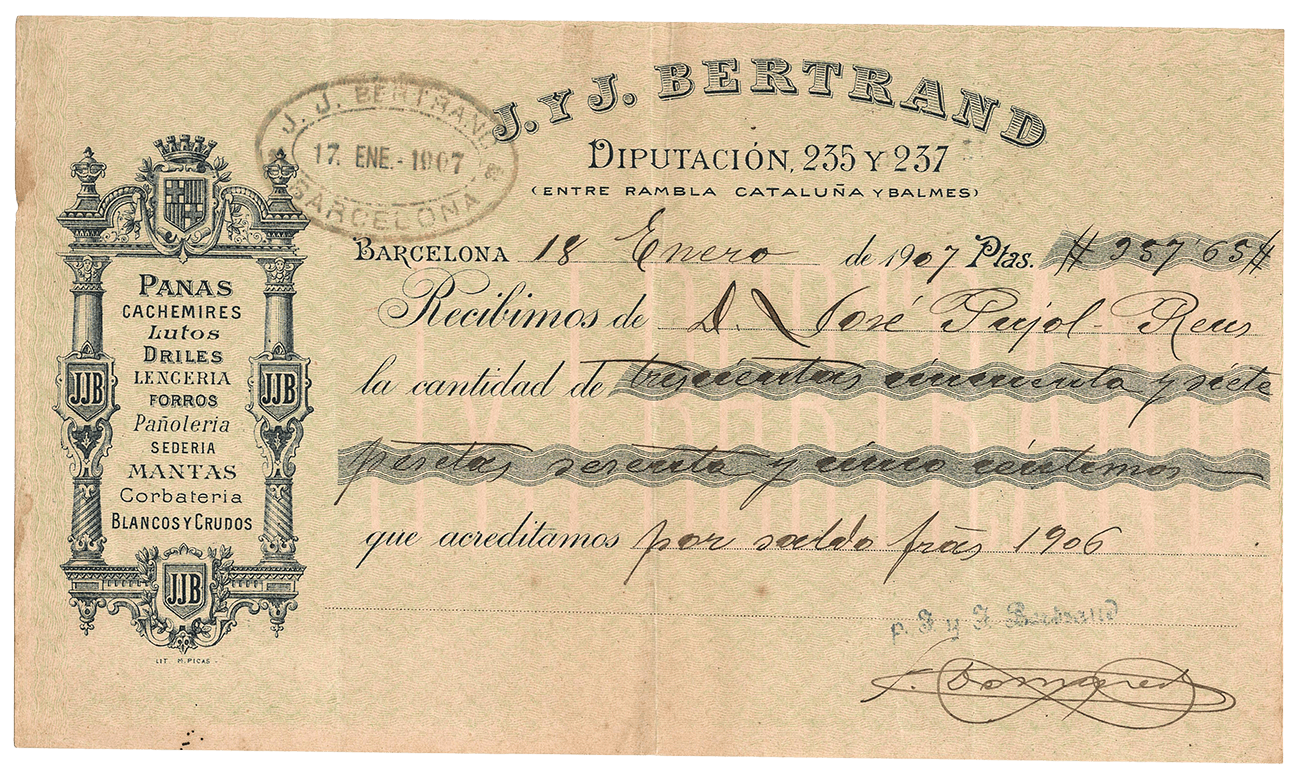 J. Y J. BERTRAND
DIPUTACIÓN, 235 Y 237
(ENTRE RAMBLA CATALUÑA Y BALMES)
J. J. BERTRAND
17. ENE.-1907
BARCELONA
BARCELONA 18 Enero de 1907 Ptas. # 357'65 #
Recibimos de D. José Pujol-Reus
la cantidad de trescientas cincuenta y siete
pesetas sesenta y cinco céntimos
que acreditamos por saldo fras 1906
p. J. y J. Bertrand
PANAS
CACHEMIRES
Lutos
DRILES
LENCERIA
FORROS
Pañoleria
SEDERIA
MANTAS
Corbateria
BLANCOS Y CRUDOS
JJB
JJB
JJB
LIT. M. PICAS.